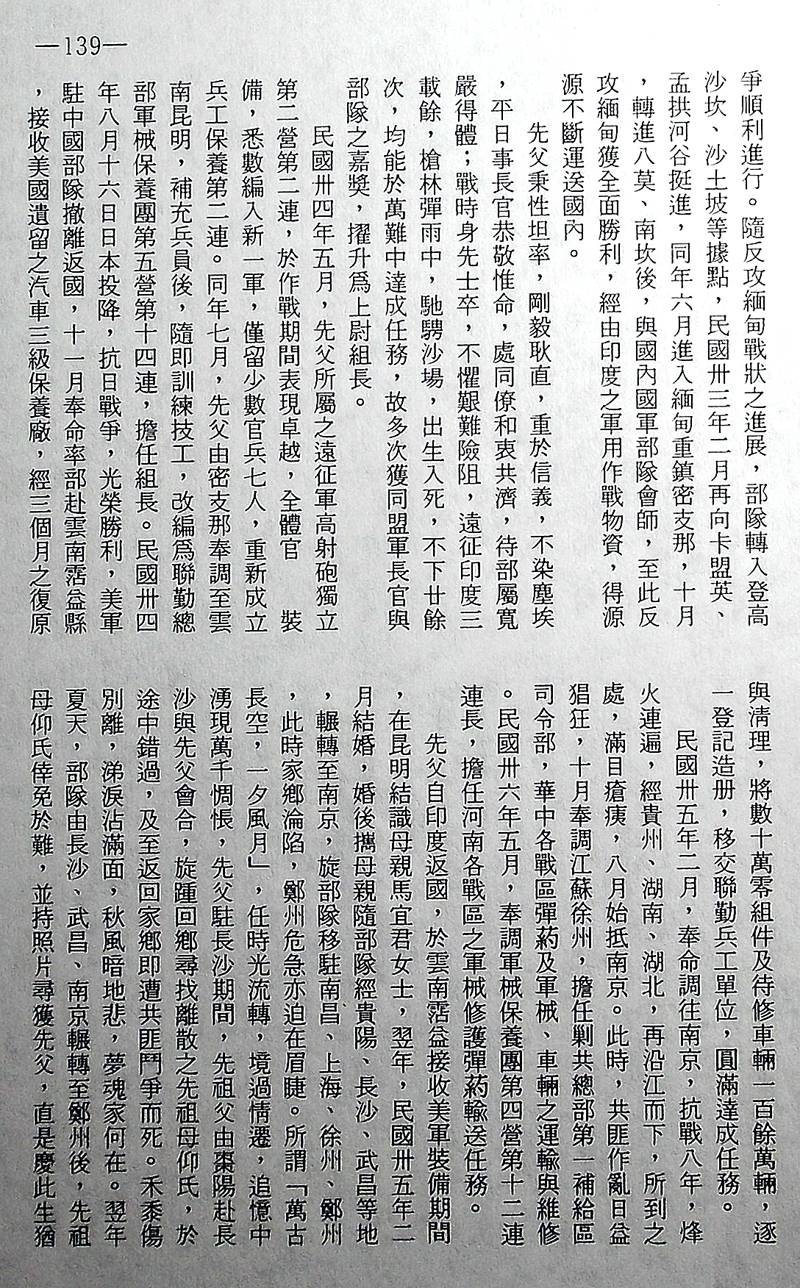 —139—
爭順利進行。隨反攻緬甸戰狀之進展，部隊轉入登高
沙坎、沙土坡等據點，民國卅三年二月再向卡盟英、
孟拱河谷挺進，同年六月進入緬甸重鎮密支那，十月
，轉進八莫、南坎後，與國內國軍部隊會師，至此反
攻緬甸獲全面勝利，經由印度之軍用作戰物資，得源
源不斷運送國內。
先父秉性坦率，剛毅耿直，重於信義，不染塵埃
，平日事長官恭敬惟命，處同僚和衷共濟，待部屬寬
嚴得體；戰時身先士卒，不懼艱難險阻，遠征印度三
載餘，槍林彈雨中，馳騁沙場，出生入死，不下廿餘
次，均能於萬難中達成任務，故多次獲同盟軍長官與
部隊之嘉獎，擢升爲上尉組長。
民國卅四年五月，先父所屬之遠征軍高射砲獨立
第二營第二連，於作戰期間表現卓越，全體官　裝
備，悉數編入新一軍，僅留少數官兵七人，重新成立
兵工保養第二連。同年七月，先父由密支那奉調至雲
南昆明，補充兵員後，隨即訓練技工，改編爲聯勤總
部軍械保養團第五營第十四連，擔任組長。民國卅四
年八月十六日日本投降，抗日戰爭，光榮勝利，美軍
駐中國部隊撤離返國，十一月奉命率部赴雲南霑益縣
，接收美國遺留之汽車三級保養廠，經三個月之復原
與清理，將數十萬零組件及待修車輛一百餘萬輛，逐
一登記造册，移交聯勤兵工單位，圓滿達成任務。
民國卅五年二月，奉命調往南京，抗戰八年，烽
火連遍，經貴州、湖南、湖北，再沿江而下，所到之
處，滿目瘡痍，八月始抵南京。此時，共匪作亂日益
猖狂，十月奉調江蘇徐州，擔任剿共總部第一補給區
司令部，華中各戰區彈葯及軍械、車輛之運輸與維修
。民國卅六年五月，奉調軍械保養團第四營第十二連
連長，擔任河南各戰區之軍械修護彈葯輸送任務。
先父自印度返國，於雲南霑益接收美軍裝備期間
，在昆明結識母親馬宜君女士，翌年，民國卅五年二
月結婚，婚後攜母親隨部隊經貴陽、長沙、武昌等地
，輾轉至南京，旋部隊移駐南昌、上海、徐州、鄭州
，此時家鄉淪陷，鄭州危急亦迫在眉睫。所謂「萬古
長空，一夕風月」，任時光流轉，境過情遷，追憶中
湧現萬千惆悵，先父駐長沙期間，先祖父由棗陽赴長
沙與先父會合，旋踵回鄉尋找離散之先祖母仰氏，於
途中錯過，及至返回家鄉即遭共匪鬥爭而死。禾黍傷
別離，涕淚沾滿面，秋風暗地悲，夢魂家何在。翌年
夏天，部隊由長沙、武昌、南京輾轉至鄭州後，先祖
母仰氏倖免於難，並持照片尋獲先父，直是慶此生猶